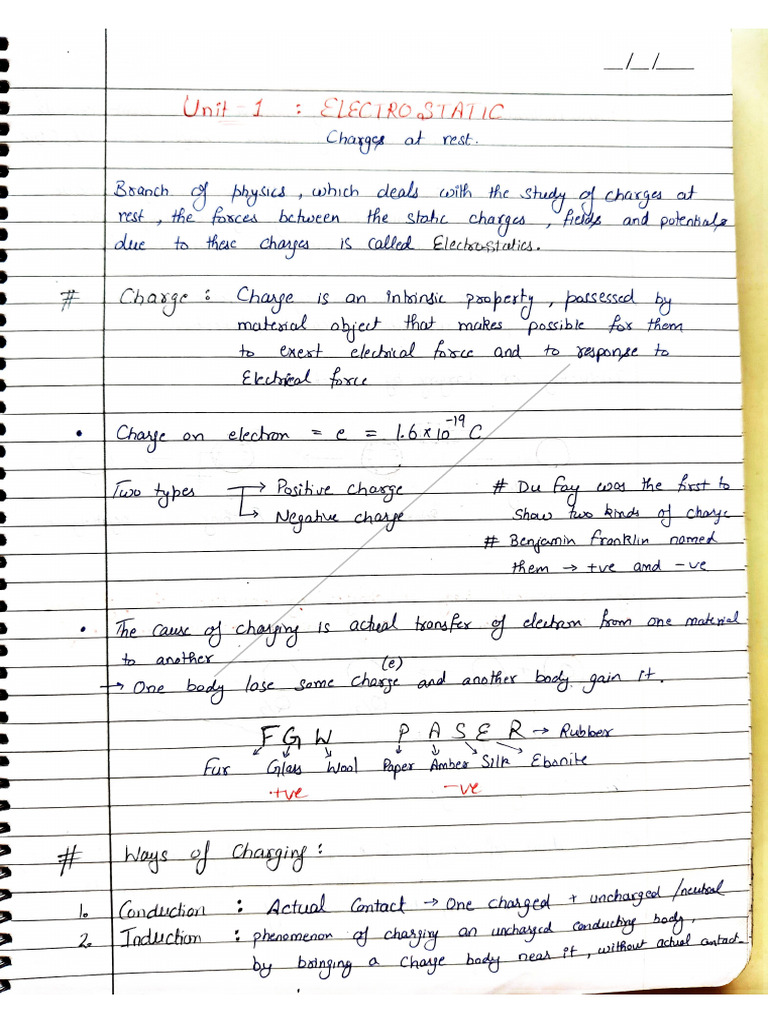 _/_/__
Unit-1 : ELECTROSTATIC
Charges at rest.
Branch of physics, which deals with the study of charges at
rest, the forces between the static charges, fields and potentials
due to these charges is called Electrostatics.
# Charge : Charge is an intrinsic property, possessed by
material object that makes possible for them
to exert electrical force and to response to
Electrical force
• Charge on electron = e = 1.6×10⁻¹⁹ C
Two types → Positive charge
→ Negative charge
# Du Fay was the first to
show two kinds of charge
# Benjamin Franklin named
them → +ve and -ve
• The cause of charging is actual transfer of electron from one material
to another
→ One body lose some charge (e) and another body gain it.
F G W P A S E R → Rubber
Fur Glass Wool Paper Amber Silk Ebonite
+ve -ve
# Ways of Charging :
1. Conduction : Actual Contact → One charged + uncharged/neutral
2. Induction : phenomenon of charging an uncharged conducting body,
by bringing a charge body near it, without actual contact.